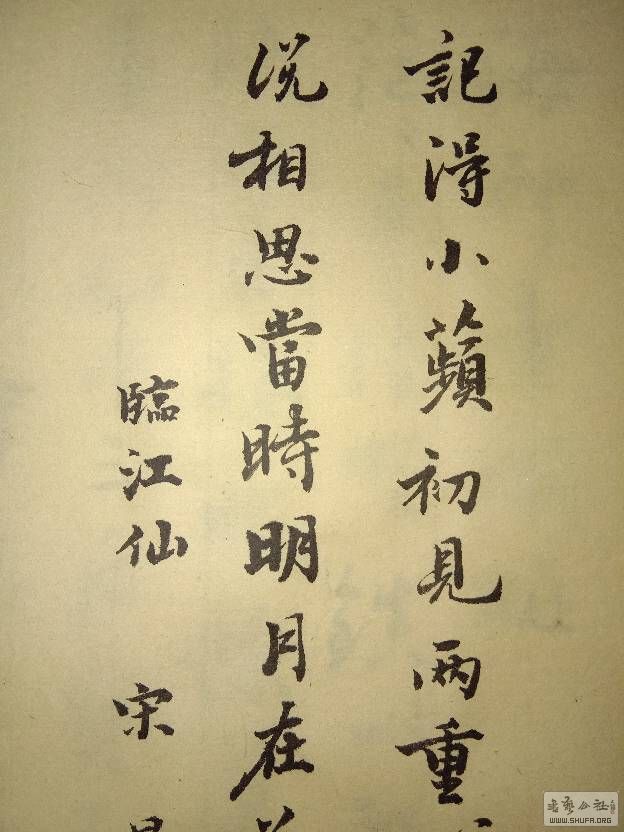 記得小蘋初見两重
説相思當時明月在
臨江仙 宋
书艺公社
WWW.SHUFA.ORG